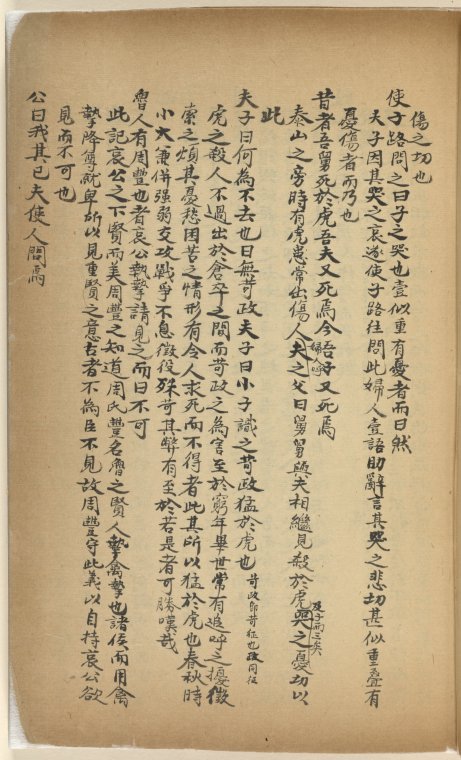 傷之切也
使子路問之曰子之哭也壹似重有憂者而曰然
夫子因其哭之哀遂使子路往問此婦人壹語助辭言其哭之悲切甚似重疊有
憂傷者而乃也
昔者吾舅死於虎吾夫又死焉今吾子又死焉
泰山之旁時有虎患常出傷人婦人呼夫之父曰舅舅與夫相繼見殺於虎及子而三矣哭之憂切以
此
夫子曰何為不去也曰無苛政夫子曰小子識之苛政猛於虎也苛政即苛征也政同征
虎之殺人不過出於倉卒之間而苛政之為害至於窮年舉世常有追呼之擾徵
索之煩其憂愁困苦之情形有令人求死而不得者此其所以猛於虎也春秋時
小大兼併強弱交攻戰爭不息徵役殊苛其弊有至於若是者可勝嘆哉
魯人有周豐也者哀公執摯請見之而曰不可
此記哀公之下賢而美周豐之知道周氏豐名魯之賢人摯禽摯也諸侯而用禽
摯降尊就卑所以見重賢之意古者不為臣不見故周豐守此義以自持哀公欲
見而不可也
公曰我其已夫使人問焉